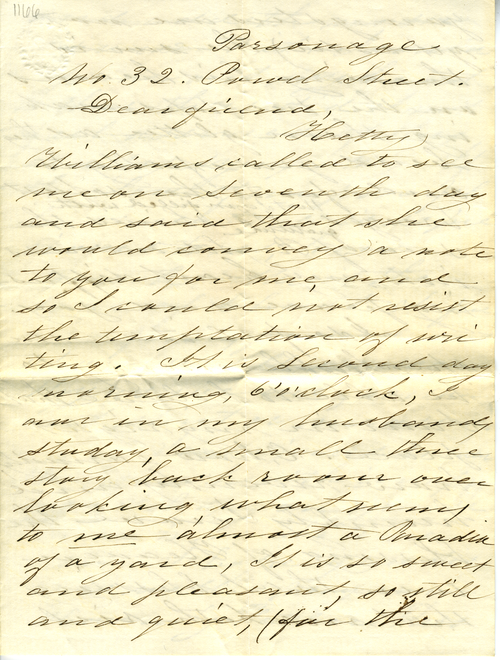 1166
Parsonage
No. 32. Powel Street.
Dear friend,
Hetty
Williams called to see
me on Seventh day
and said that she
would convey a note
to you for me and
so I could not resist
the temptation of wri
ting. It is Second day
morning, 6 o'clock, I
am in my husbands
studay, a small three
story back room over
looking what seems
to me almost a
of a yard, It is so sweet
and pleasant, so still
and quiet, (for the